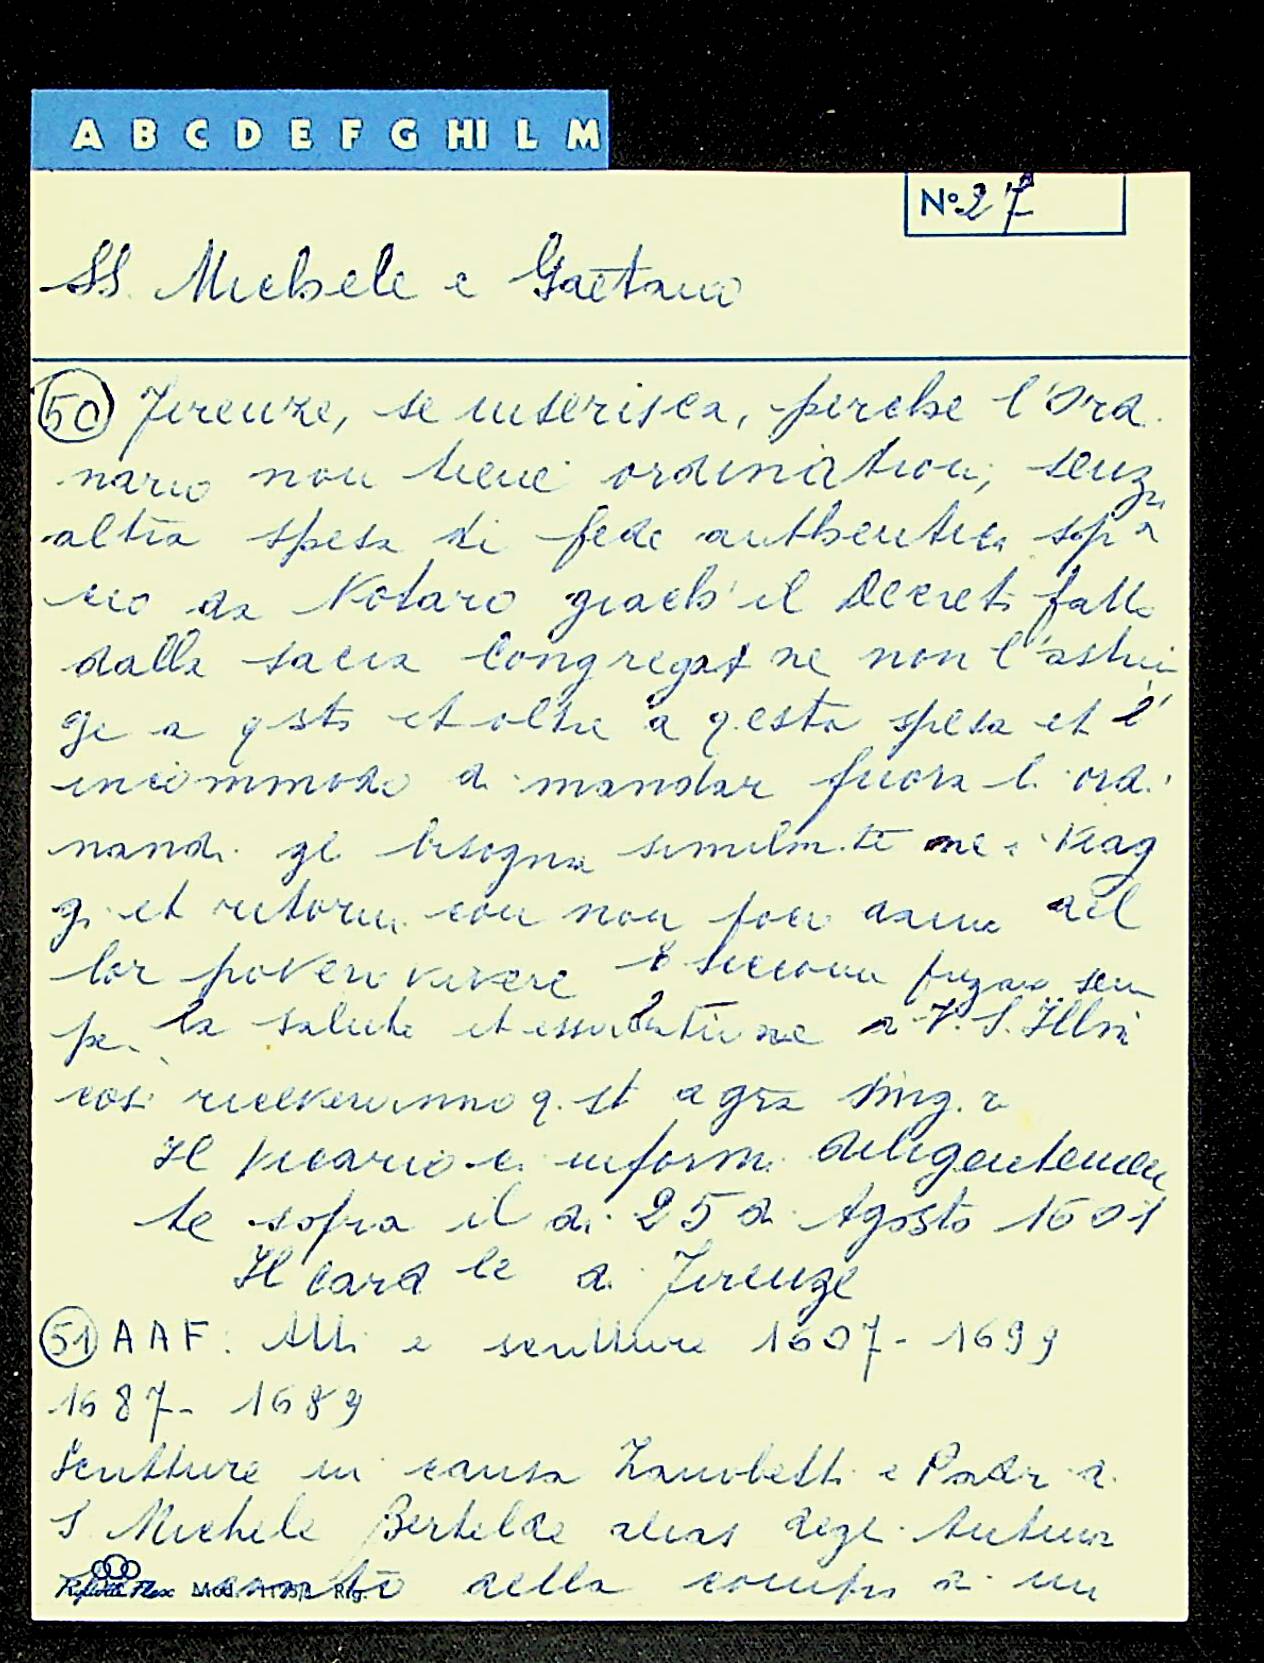 A B C D E F G HI L M
No. 27
SS. Michele e Gaetano
50 Firenze, se inserisca, perche l'Ordi
nario non tiene ordination; senz
altra spesa di fede authentica
da Notaro giach' il Decreto fatto
dalla sacra Congregatne non l'astrin
ge a qsto et oltre a qesta spesa et l'
incommodo di mandar fuora li ordi
nandi gli bisogna similmte ne Viag
gi et ritorni con non poco danno del
lor povero vivere
la salute et V. S. Illm
cosi riceveranno q.st a gra sing.a
Il Vicario ci informi diligentemen
te sopra il di 25 di Agosto 1601
Il Cardle di Firenze
51 AAF: Atti e scritture 1607-1699
1687-1689
Scritture in causa Zanobetti e Padri di
S Michele Bertelde alias degl Antinori
della